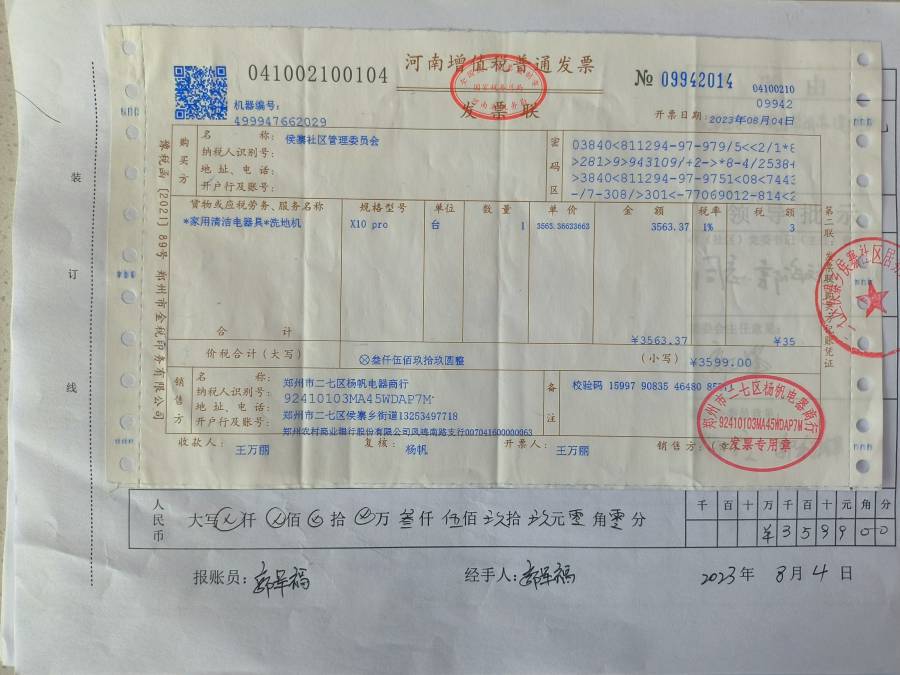 041002100104
河南增值税普通发票
发票联
№ 09942014
04100210
09942
机器编号:
499947662029
开票日期: 2023年08月04日
购买方
名 称: 侯寨社区管理委员会
纳税人识别号:
地 址、电 话:
开户行及账号:
密码区
03840<811294-97-979/5<<2/1*8
>281>9>943109/+2->*8-4/2538+
>3840<811294-97-9751<08<7443
-/7-308/>301<-77069012-814<2
货物或应税劳务、服务名称 规格型号 单位 数 量 单 价 金 额 税率 税 额
*家用清洁电器具*洗地机 X10 pro 台 1 3563.36633663 3563.37 1% 3
合 计 ¥3563.37 ¥35
价税合计(大写) ⊗叁仟伍佰玖拾玖圆整 (小写) ¥3599.00
销售方
名 称: 郑州市二七区杨帆电器商行
纳税人识别号: 92410103MA45WDAP7M
地 址、电 话: 郑州市二七区侯寨乡街道13253497718
开户行及账号: 郑州农村商业银行股份有限公司凤鸣南路支行00704160000063
备注
校验码 15997 90835 46480
收款人: 王万丽 复核: 杨帆 开票人: 王万丽 销售方:(章)
郑州市二七区杨帆电器商行
92410103MA45WDAP7M
发票专用章
豫税函〔2021〕89号 郑州市金税印务有限公司
第二联
装
订
线
人民币
大写 仟 佰 拾 万 叁仟 伍佰 玖拾 玖元 零角 零分
千 百 十 万 千 百 十 元 角 分
¥ 3 5 9 9 0 0
报账员:
经手人:
2023年 8月 4日